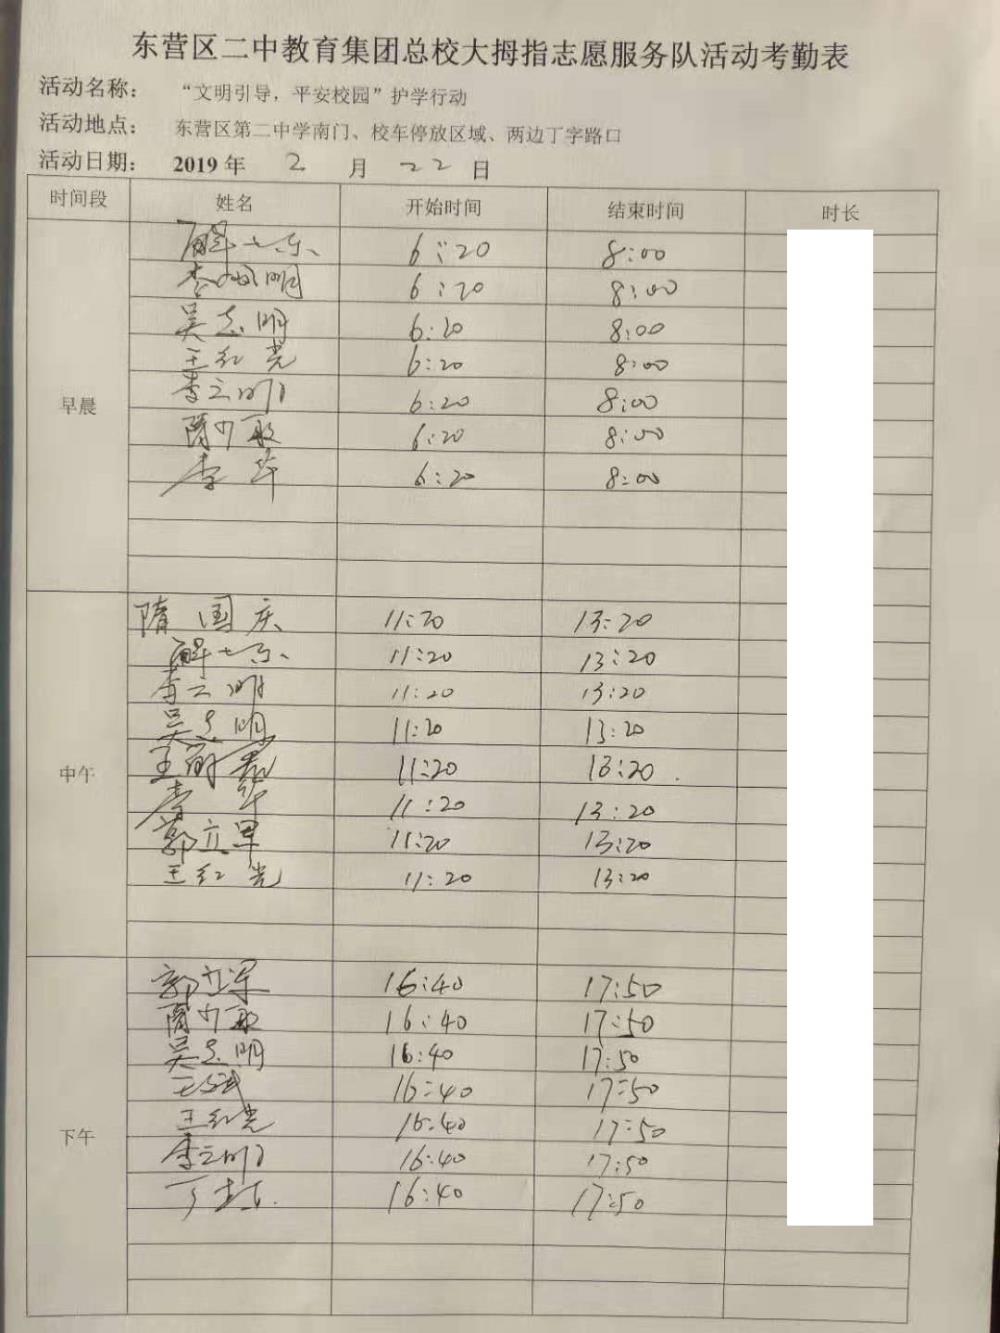 东营区二中教育集团总校大拇指志愿服务队活动考勤表
活动名称： “文明引导，平安校园”护学行动
活动地点： 东营区第二中学南门、校车停放区域、两边丁字路口
活动日期： 2019 年 2 月 22 日
时间段 姓名 开始时间 结束时间 时长
早晨
6:20 8:00
明 6:20 8:00
吴志明 6:20 8:00
王红光 6:20 8:00
李云明 6:20 8:00
隋少敏 6:20 8:00
李华 6:20 8:00
中午
隋国庆 11:20 13:20
11:20 13:20
李云明 11:20 13:20
吴志明 11:20 13:20
王 11:20 13:20
李华 11:20 13:20
郭立军 11:20 13:20
王红光 11:20 13:20
下午
郭立军 16:40 17:50
隋少敏 16:40 17:50
吴志明 16:40 17:50
王 16:40 17:50
王红光 16:40 17:50
李云明 16:40 17:50
16:40 17:50